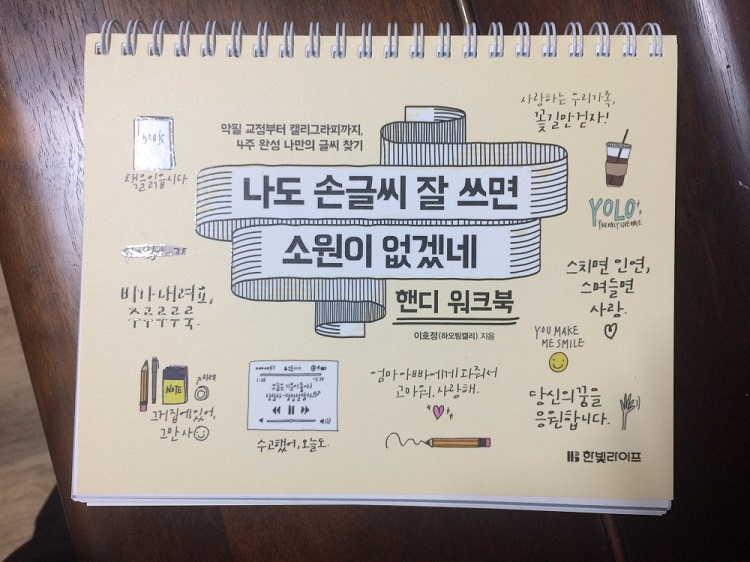 악필 교정부터 캘리그라피까지,
4주 완성 나만의 글씨 찾기
나도 손글씨 잘 쓰면
소원이 없겠네
핸디 워크북
이호정(하오팅캘리) 지음
books
책을읽읍시다
비가내려요,
주르르르륵.
NOTE
그거집에있어,
그만사
수고했어, 오늘도.
엄마아빠에게 와줘서
고마워. 사랑해.
사랑하는 우리가족,
꽃길만걷자!
YOLO
YOU ONLY LIVE ONCE
스치면 인연,
스며들면
사랑.
YOU MAKE
ME SMILE
당신의꿈을
응원합니다.
한빛라이프